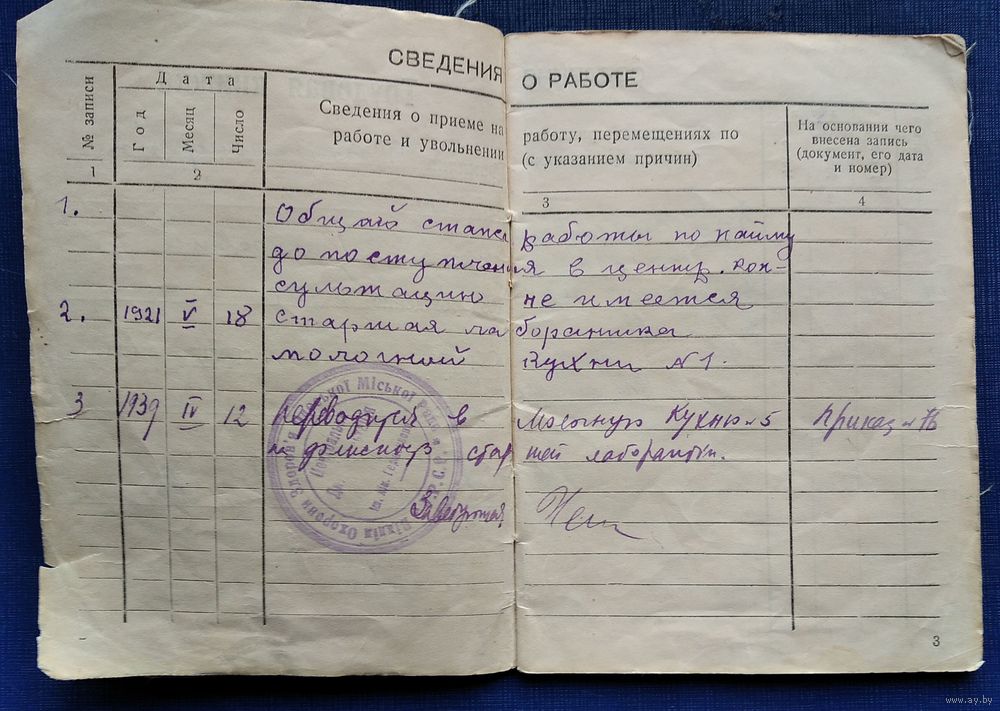 СВЕДЕНИЯ О РАБОТЕ
№ записи
Дата
Год
Месяц
Число
Сведения о приеме на работу, перемещениях по
работе и увольнении (с указанием причин)
На основании чего
внесена запись
(документ, его дата
и номер)
1 2 3 4
1. Общий стаж работы по найму
до поступления в центр. кон-
сультацию не имеется
2. 1921 V 18 старшая лаборантка
молочной кухни №1.
3 1939 IV 12 переводится в Молочную Кухню №5
старшей лаборантк.
Приказ №
Заведующая
Міської Ради
Охорони Здоров'я
3
www.ay.by